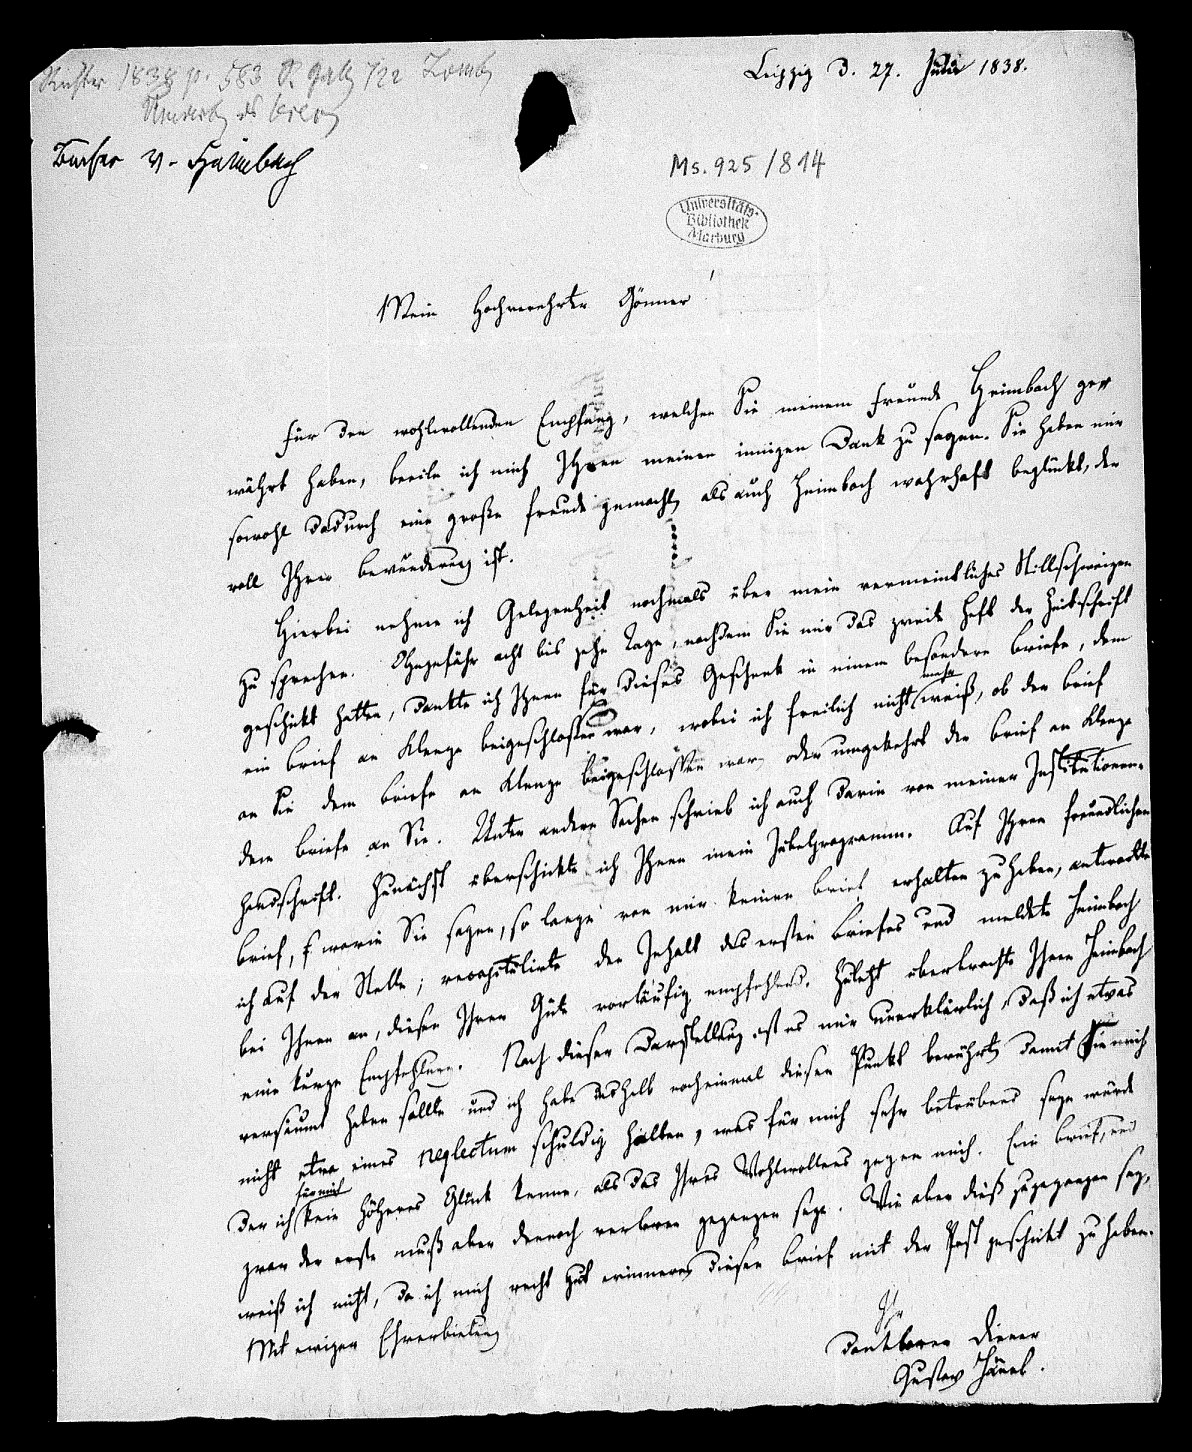 Richter 1838 p. 583 S. Gall 722 Lomb
Leipzig d. 27. Juli 1838.
v. Haimbach
Ms. 925/814
Universitäts-
Bibliothek
Marburg
Mein Hochverehrter Gönner!
Für den wohlwollenden Empfang, welchen Sie meinem Freunde Heimbach ge-
währt haben, beeile ich mich Ihnen meinen innigen Dank zu sagen. Sie haben mir
sowohl dadurch eine große Freude gemacht, als auch Heimbach wahrhaft beglückt, der
voll Ihrer Bewunderung ist.
Hierbei nehme ich Gelegenheit nochmals über mein vermeintliches Stillschweigen
zu sprechen. Ohngefähr acht bis zehn Tage, nachdem Sie mir das zweite Heft der Zeitschrift
geschickt hatten, dankte ich Ihnen für dieses Geschenk in einem besondern Briefe, dem
ein Brief an Klenze beigeschlossen war, wobei ich freilich nicht mehr weiß, ob der Brief
an Sie dem Briefe an Klenze beigeschlossen war, oder umgekehrt der Brief an Klenze
dem Briefe an Sie. Unter andern Sachen schrieb ich auch darin von meiner Institutionen-
handschrift. Zunächst überschickte ich Ihnen mein Jubelprogramm. Auf Ihren freundlichen
Brief, worin Sie sagen, so lange von mir keinen Brief erhalten zu haben, antwortete
ich auf der Stelle; recapitulirte den Inhalt des ersten Briefes und meldete Heimbach
bei Ihnen an, diesen Ihrer Güte vorläufig empfehlend. Zuletzt überbrachte Ihnen Heimbach
eine kurze Empfehlung. Nach dieser Darstellung ist es mir unerklärlich, daß ich etwas
versäumt haben sollte und ich habe deshalb nocheinmal diesen Punkt berührt, damit Sie mich
nicht etwa eines neglectum schuldig halten, was für mich sehr betrübend seyn würde
der ich für mich kein höheres Glück kenne, als das Ihres Wohlwollens gegen mich. Ein Brief, und
zwar der erste muß aber dennoch verloren gegangen seyn. Wie aber dieß zugegangen sey,
weiß ich nicht, da ich mich recht gut erinnere, diesen Brief mit der Post geschickt zu haben.
Mit ewiger Ehrerbietung
Ihr
dankbarer Diener
Gustav Hänel.